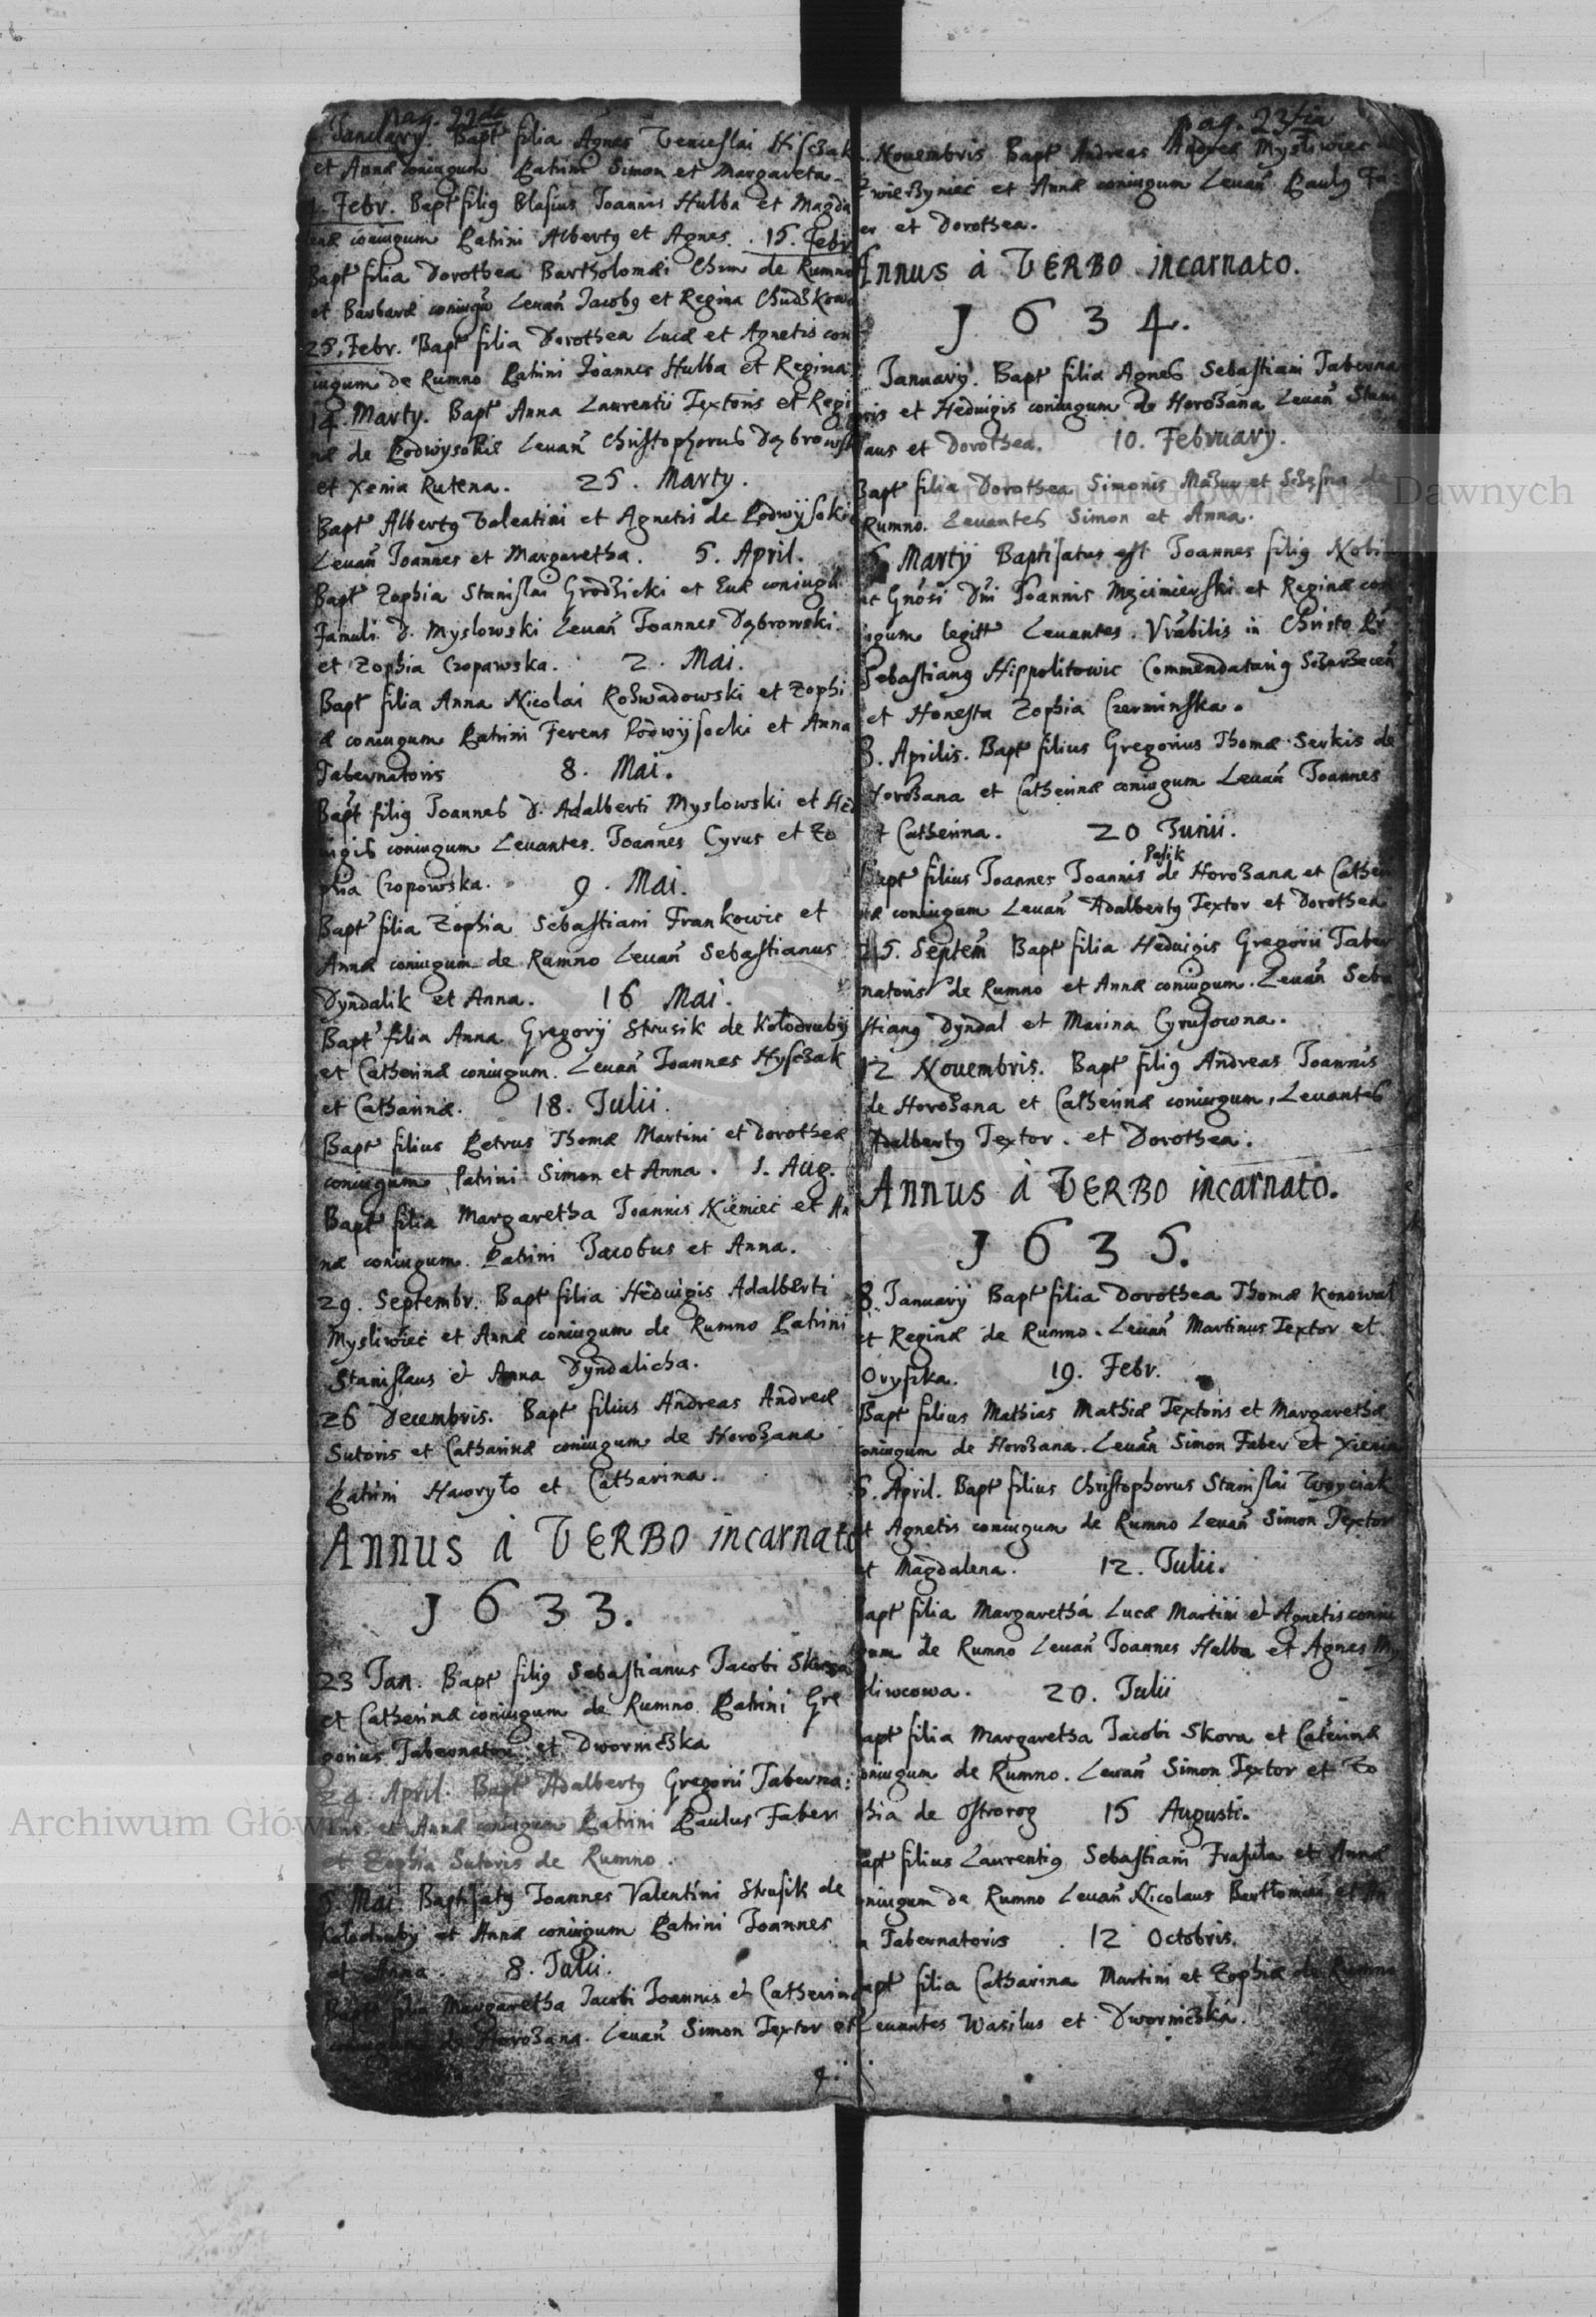 pag. 22da
January. Bapt filia Agnes Venceslai Hisczak
et Annæ coniugum Patrini Simon et Margareta
Febr. Bapt filig Blasius Joannis Hulba et Magda
enæ coniugum Patrini Albertg et Agnes. 15. Febr
Bapt filia Dorothea Bartholomæi Chim de Rumno
et Barbaræ coniugū Leuañ Jacobg et Regina
25. Febr. Bapt filia Dorothea Lucæ et Agnetis con
iugum de Rumno Patrini Joannes Hulba et Regina
14. Marty. Bapt Anna Laurentii Textoris et Regi
næ de Podwysokie Leuañ Christophorus Dąbrowsk
et Xenia Rutena. 25. Marty.
Bapt Albertg Valentini et Agnetis de Podwysokie
Leuañ Joannes et Margaretha. 5. April.
Bapt Zophia Stanislai Grodzicki et Euæ coniugū
Famuli D. Myslowski Leuañ Joannes Dąbrowski
et Zophia Czopawska. 2. Mai.
Bapt filia Anna Nicolai Rozwadowski et Zophi
æ coniugum Patrini Ferens Podwysocki et Anna
Tabernatoris 8. Mai.
Bapt filig Joannes D. Adalberti Myslowski et Hed
uigis coniugum Leuantes. Joannes Cyrus et Zo
phia Czopowska. 9. Mai.
Bapt filia Zophia Sebastiani Frankowic et
Annæ coniugum de Rumno Leuañ Sebastianus
Dyndalik et Anna. 16 Mai.
Bapt filia Anna Gregorij Strusik de Kołodruby
et Catherinæ coniugum. Leuañ Joannes Hysczak
et Catharinæ. 18. Julii.
Bapt filius Petrus Thomæ Martini et Dorotheæ
coniugum, Patrini Simon et Anna. 1. Aug.
Bapt filia Margaretha Joannis Niemiec et An
næ coniugum. Patrini Jacobus et Anna.
29. Septembr. Bapt filia Heduigis Adalberti
Mysliwiec et Annæ coniugum de Rumno Patrini
Stanislaus et Anna Dyndalicha.
26 Decembris. Bapt filius Andreas Andreæ
Sutoris et Catharinæ coniugum de Horozana
Patrini Hawryło et Catharina.
Annus à VERBO incarnato
1633.
23 Jan. Bapt filig Sebastianus Jacobi
et Catherinæ coniugum de Rumno Patrini Gre
gorius Tabernator et Dworniczka
24. April. Bapt Adalbertg Gregorii Taberna:
et Annæ coniugum Patrini Paulus Faber
et Zophia Sutoris de Rumno.
5 Mai. Baptisatg Joannes Valentini Strusik de
Kołodruby et Annæ coniugum Patrini Joannes
et Anna. 8. Julii.
Bapt filia Margaretha Jacobi Joannis et Catherinæ
de Horozana. Leuañ Simon Textor et
pag. 23tia
Nouembris Bapt Andreas Andreæ Mysliwiec
Zwierzyniec et Annæ coniugum Leuañ Paulg Fa
er et Dorothea.
Annus à VERBO incarnato.
1634.
January. Bapt filia Agnes Sebastiani Taberna
oris et Heduigis coniugum de Horozana Leuañ Stani
laus et Dorothea. 10. February.
Bapt filia Dorothea Simonis Mazur et de
Rumno. Leuantes Simon et Anna.
5 Martij Baptisatus est Joannes filig Nobil
ac Gnosi Dni Joannis et Reginæ con
iugum legitt Leuantes. Vrabilis in Christo Pr
Sebastiang Hippolitowic Commendatarig
et Honesta Zophia Czerminska.
8. Aprilis. Bapt filius Gregorius Thomæ Serkis de
Horozana et Catherinæ coniugum Leuañ Joannes
t Catherina. 20 Junii.
Pasik
Bapt filius Joannes Joannis de Horozana et Cather
inæ coniugum Leuañ Adalbertg Textor et Dorothea
25. Septem Bapt filia Heduigis Gregorii Taber
natoris de Rumno et Annæ coniugum. Leuañ Seba
stiang Dyndal et Marina Cyrusowna.
12 Nouembris. Bapt filig Andreas Joannis
de Horozana et Catherinæ coniugum, Leuantes
Adalbertg Textor. et Dorothea.
Annus à VERBO incarnato.
1635.
8. Januarij Bapt filia Dorothea Thomæ Konowal
et Reginæ de Rumno. Leuañ Martinus Textor et
Oryszka. 19. Febr.
Bapt filius Mathias Mathiæ Textoris et Margarethæ
coniugum de Horozana. Leuañ Simon Faber et Xienia
6. April. Bapt filius Christophorus Stanislai Woyciak
et Agnetis coniugum de Rumno Leuañ Simon Textor
et Magdalena. 12. Julii.
Bapt filia Margaretha Lucæ Martini et Agnetis coniu
gum de Rumno Leuañ Joannes Halba et Agnes My
sliwcowa. 20. Julii
apt filia Margaretha Jacobi Skora et Caterinæ
oniugum de Rumno. Leuañ Simon Textor et Zo
phia de Ostrorog 15 Augusti.
apt filius Laurentig Sebastiani Frasula et Annæ
oniugum de Rumno Leuañ Nicolaus et An
a Tabernatoris 12 Octobris.
Bapt filia Catharina Martini et Zophiæ de Rumno
Leuantes Wasilus et Dworniczka.
Archiwum Główne Akt Dawnych